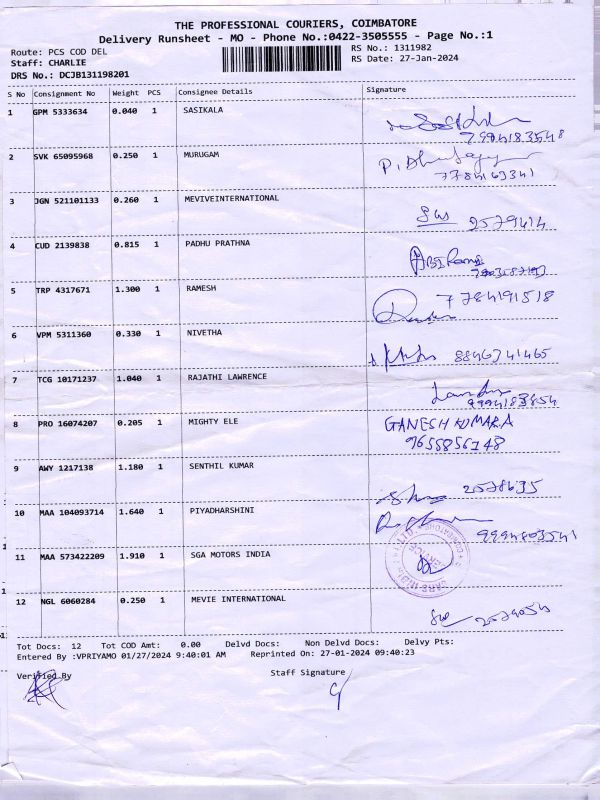 THE PROFESSIONAL COURIERS, COIMBATORE
Delivery Runsheet - MO - Phone No.:0422-3505555 - Page No.:1
Route: PCS COD DEL
RS No.: 1311982
Staff: CHARLIE
RS Date: 27-Jan-2024
DRS No.: DCJB131198201
S No Consignment No Weight PCS Consignee Details Signature
1 GPM 5333634 0.040 1 SASIKALA
2 SVK 65095968 0.250 1 MURUGAM
3 JGN 521101133 0.260 1 MEVIVEINTERNATIONAL
2579414
4 CUD 2139838 0.815 1 PADHU PRATHNA
5 TRP 4317671 1.300 1 RAMESH
7784191518
6 VPM 5311360 0.330 1 NIVETHA
8846341465
7 TCG 10171237 1.040 1 RAJATHI LAWRENCE
9994183854
8 PRO 16074207 0.205 1 MIGHTY ELE
GANESH KUMAR.A
9655856748
9 AWY 1217138 1.180 1 SENTHIL KUMAR
2578635
10 MAA 104093714 1.640 1 PIYADHARSHINI
9994803541
11 MAA 573422209 1.910 1 SGA MOTORS INDIA
12 NGL 6060284 0.250 1 MEVIE INTERNATIONAL
Tot Docs: 12 Tot COD Amt: 0.00 Delvd Docs: Non Delvd Docs: Delvy Pts:
Entered By :VPRIYAMO 01/27/2024 9:40:01 AM Reprinted On: 27-01-2024 09:40:23
Verified By Staff Signature